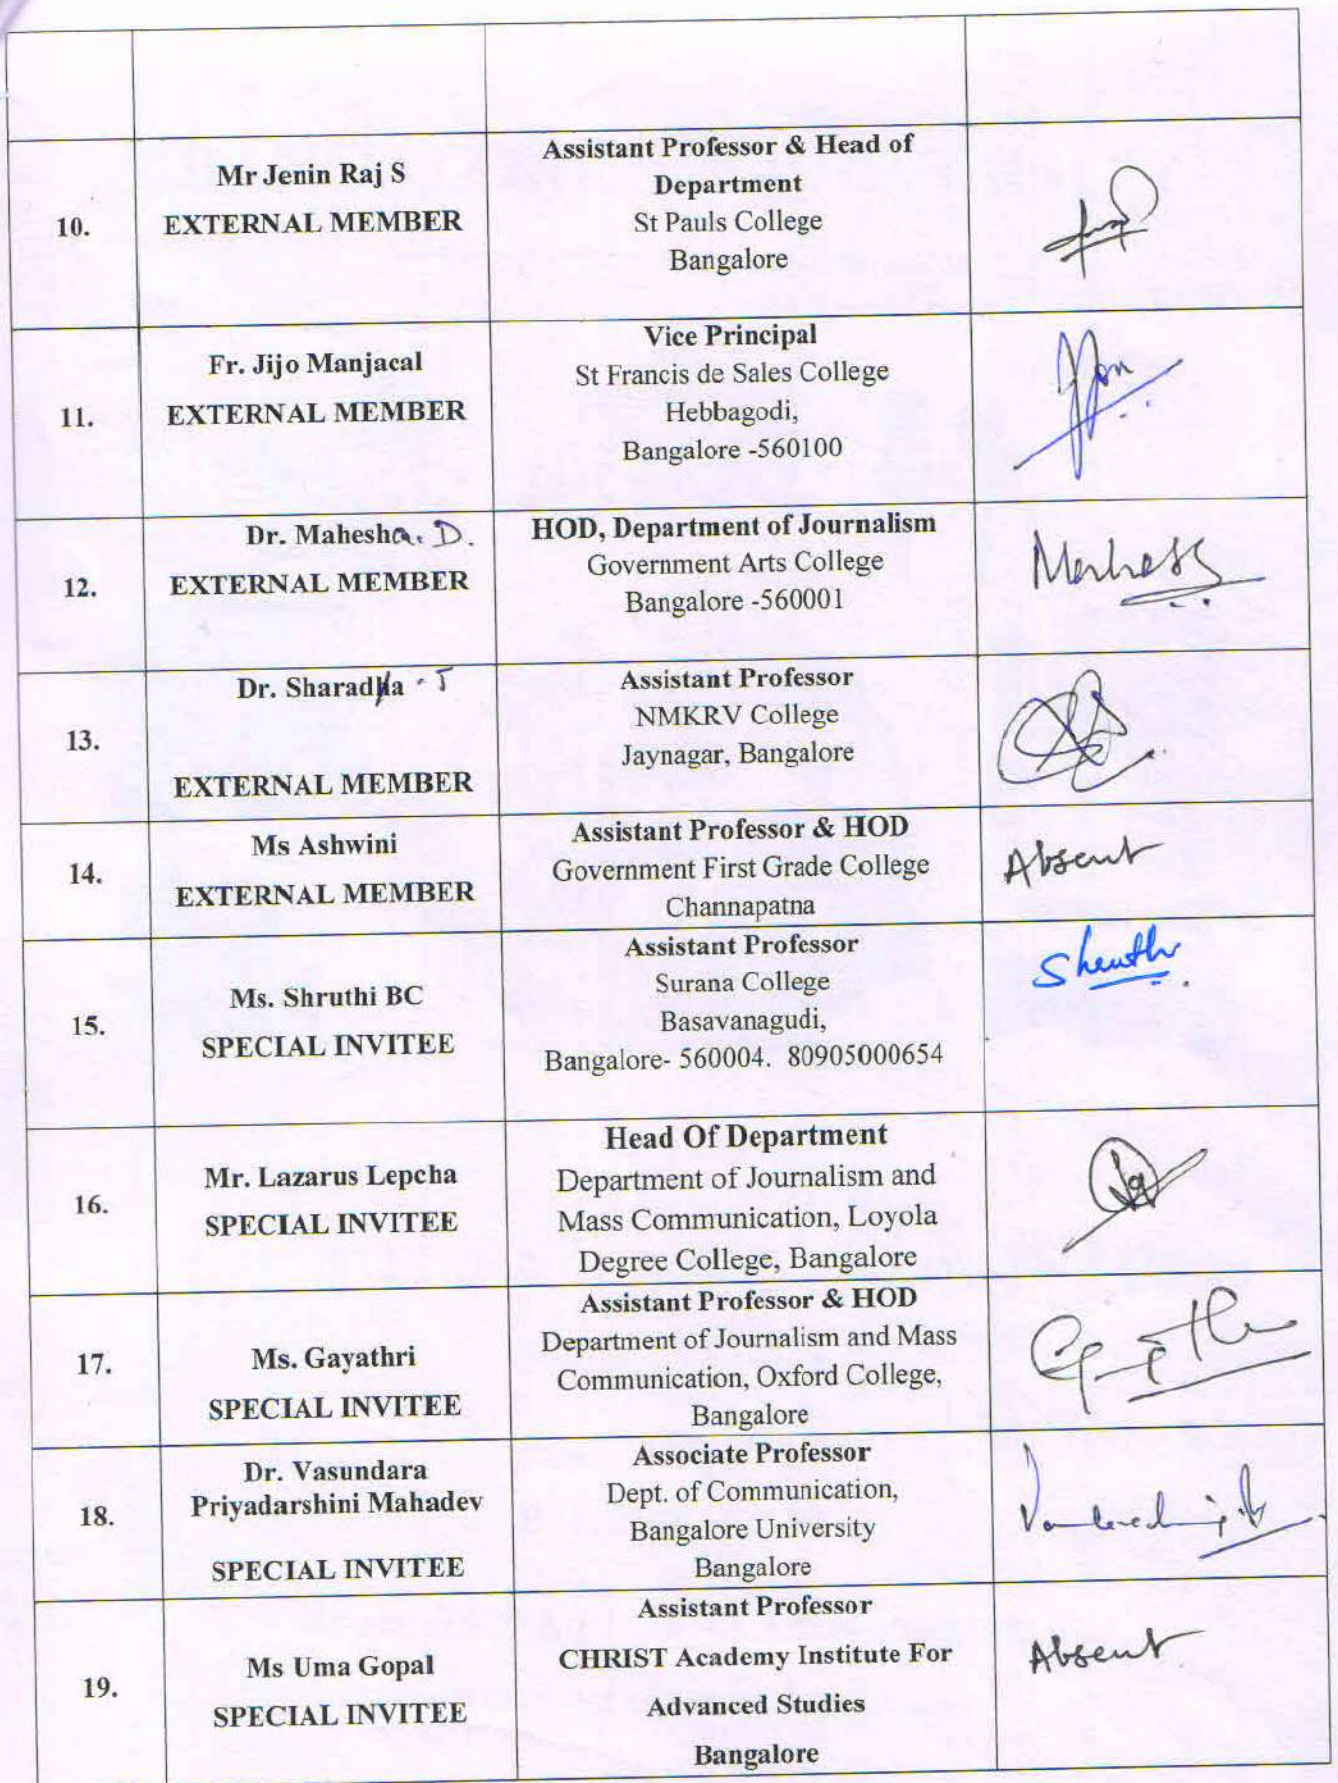 10.
Mr Jenin Raj S
EXTERNAL MEMBER
Assistant Professor & Head of
Department
St Pauls College
Bangalore
11.
Fr. Jijo Manjacal
EXTERNAL MEMBER
Vice Principal
St Francis de Sales College
Hebbagodi,
Bangalore -560100
12.
Dr. Mahesha. D.
EXTERNAL MEMBER
HOD, Department of Journalism
Government Arts College
Bangalore -560001
13.
Dr. Sharadha . J
EXTERNAL MEMBER
Assistant Professor
NMKRV College
Jaynagar, Bangalore
14.
Ms Ashwini
EXTERNAL MEMBER
Assistant Professor & HOD
Government First Grade College
Channapatna
Absent
15.
Ms. Shruthi BC
SPECIAL INVITEE
Assistant Professor
Surana College
Basavanagudi,
Bangalore- 560004. 80905000654
Shruthi
16.
Mr. Lazarus Lepcha
SPECIAL INVITEE
Head Of Department
Department of Journalism and
Mass Communication, Loyola
Degree College, Bangalore
17.
Ms. Gayathri
SPECIAL INVITEE
Assistant Professor & HOD
Department of Journalism and Mass
Communication, Oxford College,
Bangalore
18.
Dr. Vasundara
Priyadarshini Mahadev
SPECIAL INVITEE
Associate Professor
Dept. of Communication,
Bangalore University
Bangalore
19.
Ms Uma Gopal
SPECIAL INVITEE
Assistant Professor
CHRIST Academy Institute For
Advanced Studies
Bangalore
Absent